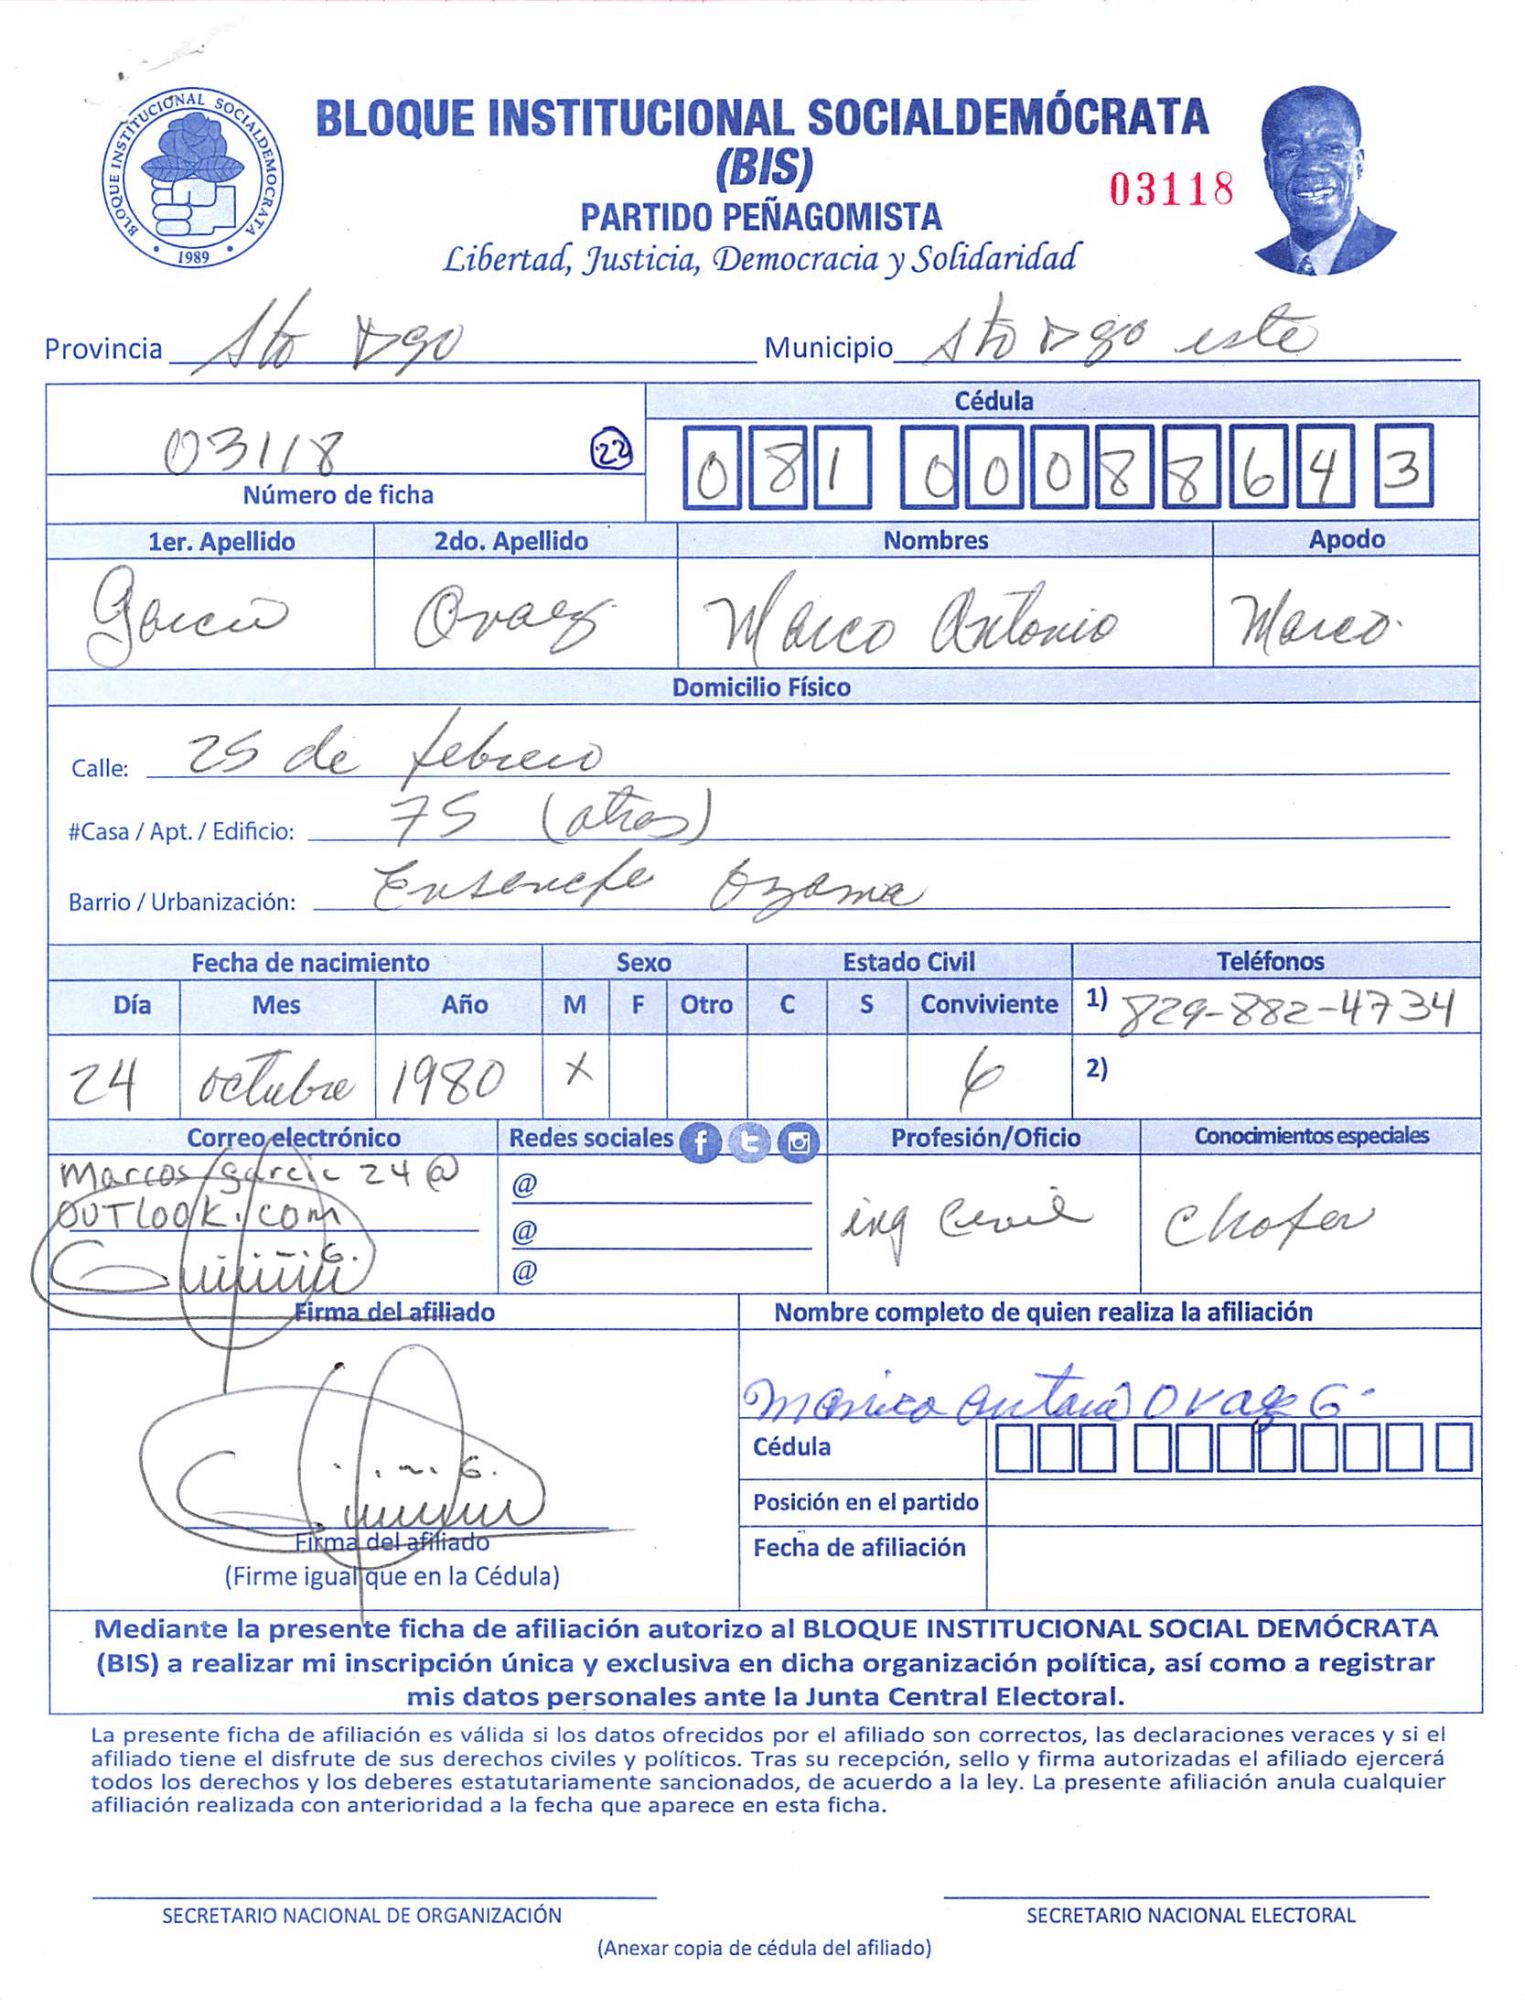 BLOQUE INSTITUCIONAL SOCIALDEMOCRATA
1989
BLOQUE INSTITUCIONAL SOCIALDEMÓCRATA
(BIS)
03118
PARTIDO PEÑAGOMISTA
Libertad, Justicia, Democracia y Solidaridad
Provincia Sto Dgo Municipio Sto Dgo este
Cédula
03118 22
081 0008864 3
Número de ficha
1er. Apellido 2do. Apellido Nombres Apodo
Garcia Ovaez Marco Antonio Marco
Domicilio Físico
Calle: 25 de febrero
#Casa / Apt. / Edificio: 75 (atras)
Barrio / Urbanización: Ozama
Fecha de nacimiento Sexo Estado Civil Teléfonos
Día Mes Año M F Otro C S Conviviente 1) 829-882-4734
24 octubre 1980 X 2)
Correo electrónico Redes sociales Profesión/Oficio Conocimientos especiales
Marcos garcia 24 @
OUTLOOK.com
@
@
@
ing Civil Chofer
Firma del afiliado Nombre completo de quien realiza la afiliación
Ovaez G
Cédula
Posición en el partido
Fecha de afiliación
Firma del afiliado
(Firme igual que en la Cédula)
Mediante la presente ficha de afiliación autorizo al BLOQUE INSTITUCIONAL SOCIAL DEMÓCRATA
(BIS) a realizar mi inscripción única y exclusiva en dicha organización política, así como a registrar
mis datos personales ante la Junta Central Electoral.
La presente ficha de afiliación es válida si los datos ofrecidos por el afiliado son correctos, las declaraciones veraces y si el
afiliado tiene el disfrute de sus derechos civiles y políticos. Tras su recepción, sello y firma autorizadas el afiliado ejercerá
todos los derechos y los deberes estatutariamente sancionados, de acuerdo a la ley. La presente afiliación anula cualquier
afiliación realizada con anterioridad a la fecha que aparece en esta ficha.
SECRETARIO NACIONAL DE ORGANIZACIÓN SECRETARIO NACIONAL ELECTORAL
(Anexar copia de cédula del afiliado)